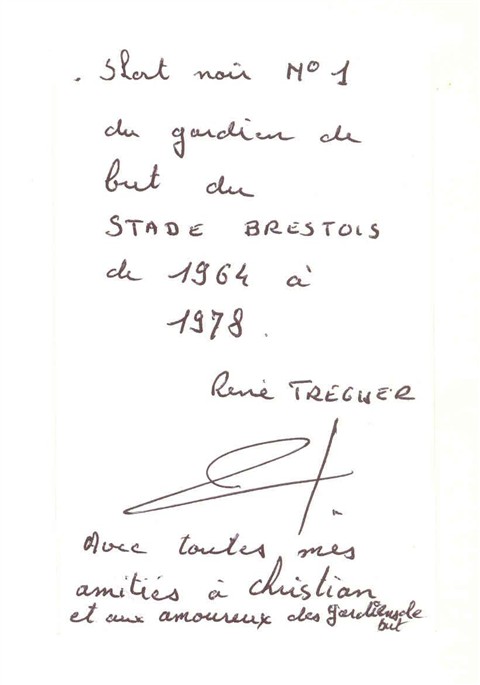 . Short noir N° 1
du gardien de
but du
STADE BRESTOIS
de 1964 à
1978.
René TREGUER
Avec toutes mes
amitiés à Christian
et aux amoureux des gardiens de
but